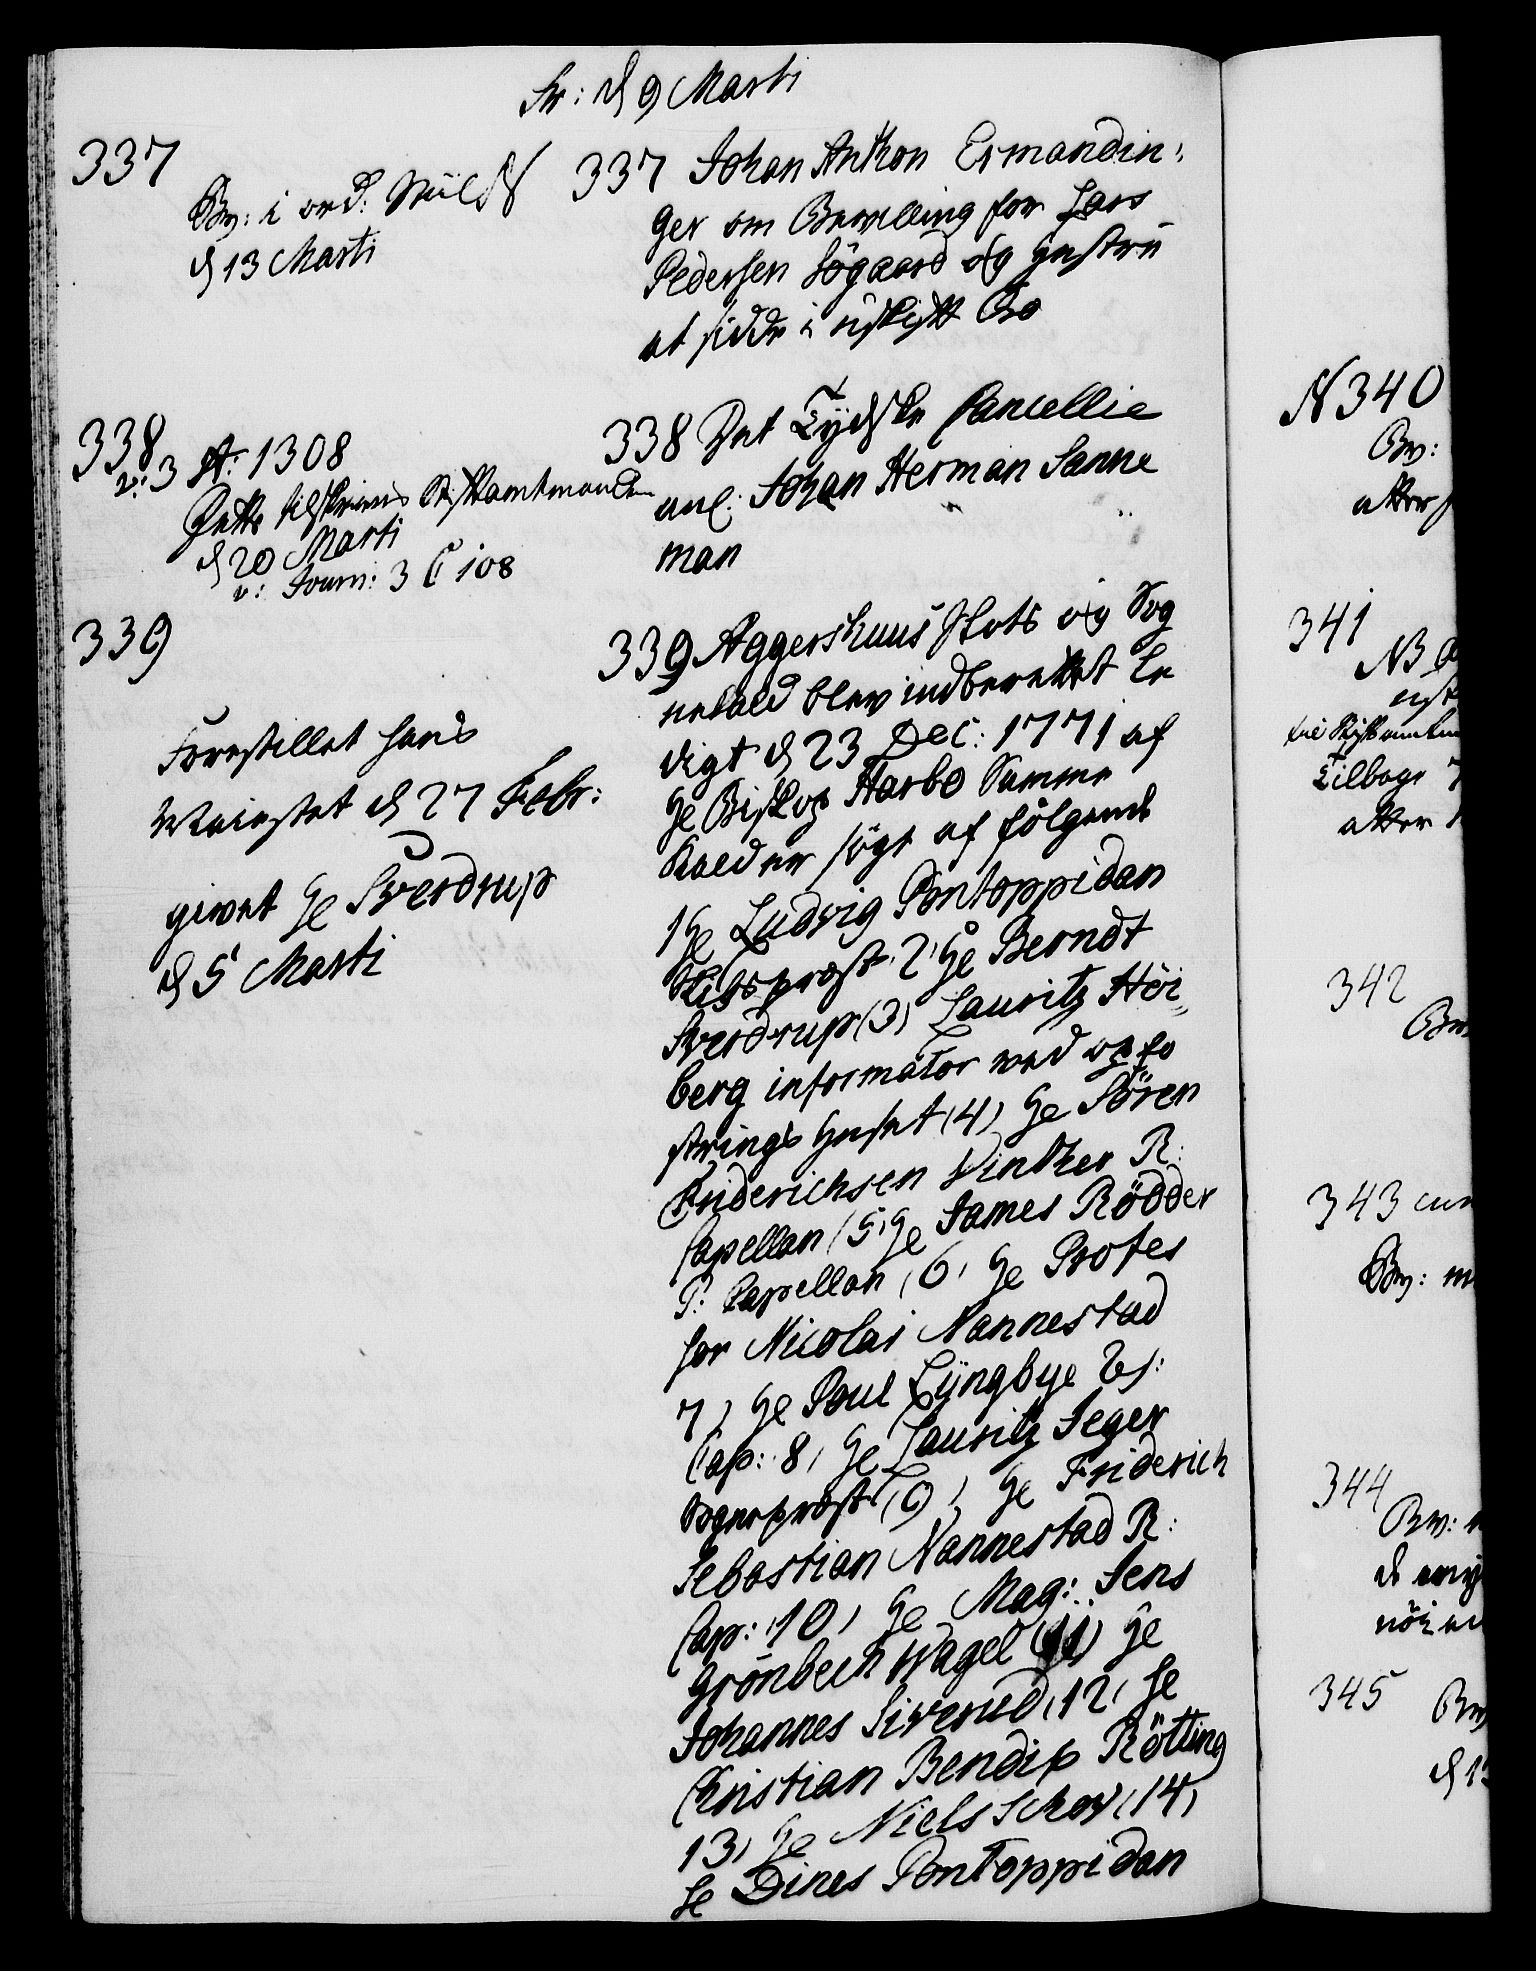 Fr: d 9 Marti
337
Bev: i ord: Stiil
d 13 Marti
337 Johan Anthon Ermandin,
ger om Bevilling for Lars
Pedersen Søgaard og Hustru
at sidde i uskift Bo
338
v: 3 A: 1308
Dette tilskrevs Stiftamtmanden
d 20 Marti
v: Journ: 3 C 108
338 Det Tydske Cancellie
anl: Johan Herman Sanne
man
339
Forestillet hans
Maiestet d 27 Febr:
givet Hr Sverdrup
d 5 Marti
339 Aggershuus Slots og Sog
nekald blev indberettet le
digt d 23 Dec: 1771 af
Hr Biskop Harbo Samme
Kald er søgt af følgende
1 Hr Ludvig Pontoppidan
Slitsprest 2, Hr Berndt
Sverdrup (3) Lauritz Høi,
berg informator ved opfo
strings Huset (4) Hr Søren
Friderichsen Vinther R:
Capellan (5, Hr James Rödder
P: Capellan (6, Hr Profes
sor Nicolai Nannestad
7) Hr Poul Lyngbye
Cap: 8, Hr Lauritz Seger
Sogneprest (9), Hr Friderich
Sebastian Nannestad R:
Cap: 10, Hr Mag: Jens
Grønbech Wagel (11) Hr
Johannes Siverud, 12, Hr
Christian Bendix Rötting
13, Hr Niels Schow (14)
Hr Dines Pontoppidan
N 340
Bev:
atter
341
NB
til Stiftamtm
Tilbage
atter
342
Bev
343 cum
Bev: m
344
Bev:
345
Bev
d 13